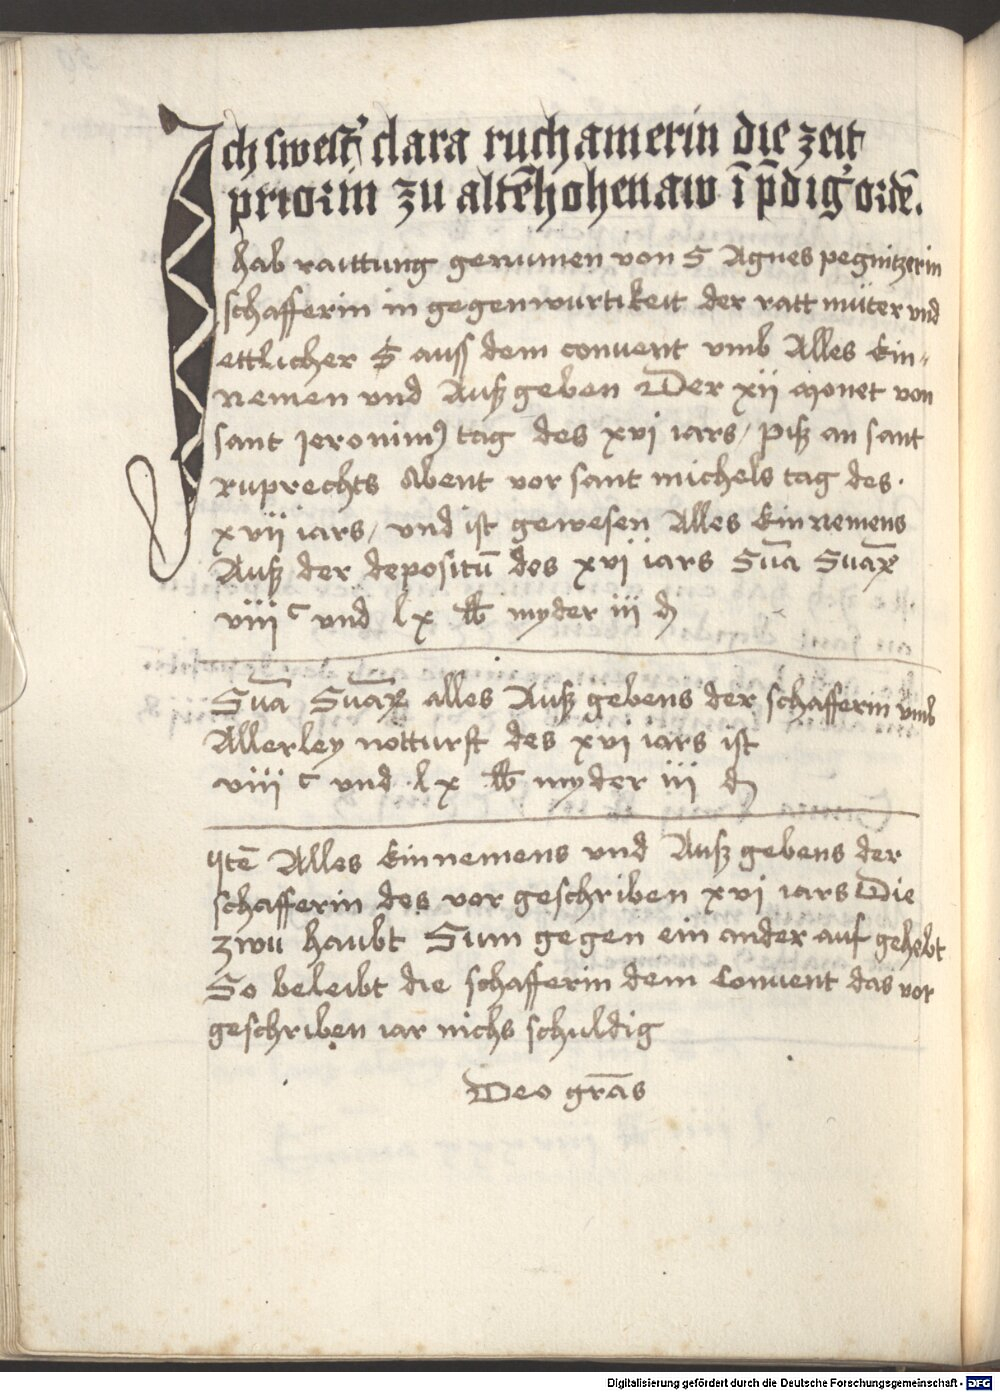 Ich swest' clara ruchamerin die zeit
priorin zu altēhohenaw ī p̄dig' ordē.
hab raittung genumen von S Agnes pegnitzerin
schafferin in gegenwurtikeit der ratt müter vnd
ettlicher S auss dem conuent vmb Alles Ein-
nemen vnd Außgeben Der xij monet von
sant Jeronimꝰ tag des xvj iars / piß an sant
ruprechts Abent vor sant michels tag des.
xvij iars / vnd ist gewesen Alles Ein nemens
Auß der depositū des xvj iars Sūa Suaꝝ
viijᶜ vnd lx ℔ myder iij ₰
Sūa Suaꝝ alles Auß gebens der schafferin vmb
Allerley notturft des xvj iars ist
viij c vnd lx ℔ myder iij ₰
Itē Alles Einnemens vnd Auß gebens der
schafferin des vor geschriben xvj iars Die
zwu haubt Sum gegen ein ander auf gehebt
So beleibt die schafferin dem Conuent das vor
geschriben iar nichs schuldig
Deo gr̄as
Digitalisierung gefördert durch die Deutsche Forschungsgemeinschaft - DFG